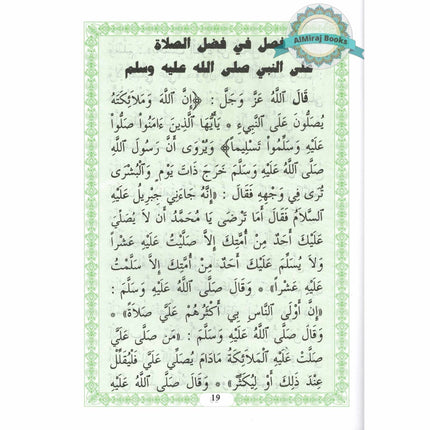 AlMiraj Books
فصل في فضل الصلاة
على النبي صلى الله عليه وسلم
قَالَ اللَّهُ عَزَّ وَجَلَّ : ﴿إِنَّ اللَّهَ وَمَلَائِكَتَهُ
يُصَلُّونَ عَلَى النَّبِيءِ * يَأَيُّهَا الَّذِينَ ءَامَنُواْ صَلُّواْ
عَلَيْهِ وَسَلِّمُواْ تَسْلِيماً﴾ وَيُرْوَى أَنَّ رَسُولَ اللَّهِ
صَلَّى اللَّهُ عَلَيْهِ وَسَلَّمَ خَرَجَ ذَاتَ يَوْمٍ وَالْبُشْرَى
تُرَى فِي وَجْهِهِ فَقَالَ : «إِنَّهُ جَاءَنِي جِبْرِيلُ عَلَيْهِ
السَّلَامُ فَقَالَ أَمَا تَرْضَى يَا مُحَمَّدُ أَنْ لَا يُصَلِّيَ
عَلَيْكَ أَحَدٌ مِنْ أُمَّتِكَ إِلَّا صَلَّيْتُ عَلَيْهِ عَشْراً
وَلَا يُسَلِّمَ عَلَيْكَ أَحَدٌ مِنْ أُمَّتِكَ إِلَّا سَلَّمْتُ
عَلَيْهِ عَشْراً» * وَقَالَ صَلَّى اللَّهُ عَلَيْهِ وَسَلَّمَ :
«إِنَّ أَوْلَى النَّاسِ بِي أَكْثَرُهُمْ عَلَيَّ صَلَاةً» *
وَقَالَ صَلَّى اللَّهُ عَلَيْهِ وَسَلَّمَ : «مَنْ صَلَّى عَلَيَّ
صَلَّتْ عَلَيْهِ الْمَلَائِكَةُ مَادَامَ يُصَلِّي عَلَيَّ فَلْيُقَلِّلْ
عِنْدَ ذَلِكَ أَوْ لِيُكَثِّرْ» * وَقَالَ صَلَّى اللَّهُ عَلَيْهِ
19